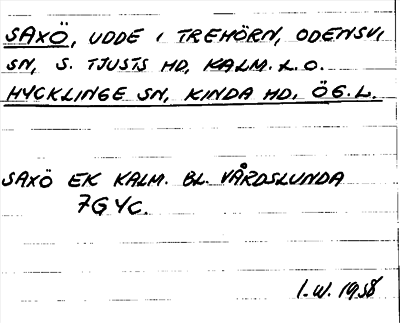 SAXÖ, UDDE I TREHÖRN, ODENSVI
SN, S. TJUSTS HD, KALM. L. O.
HYCKLINGE SN, KINDA HD, ÖG. L.
SAXÖ EK KALM. BL. VÅRDSLUNDA
7G YC.
I.W. 1958